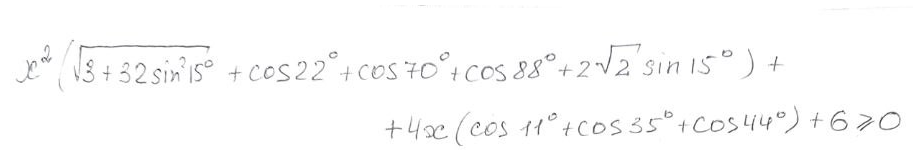 x²(√(3+32sin²15°) + cos22° + cos70° + cos88° + 2√2 sin15°) +
+4x(cos 11° + cos35° + cos44°) + 6 ⩾ 0